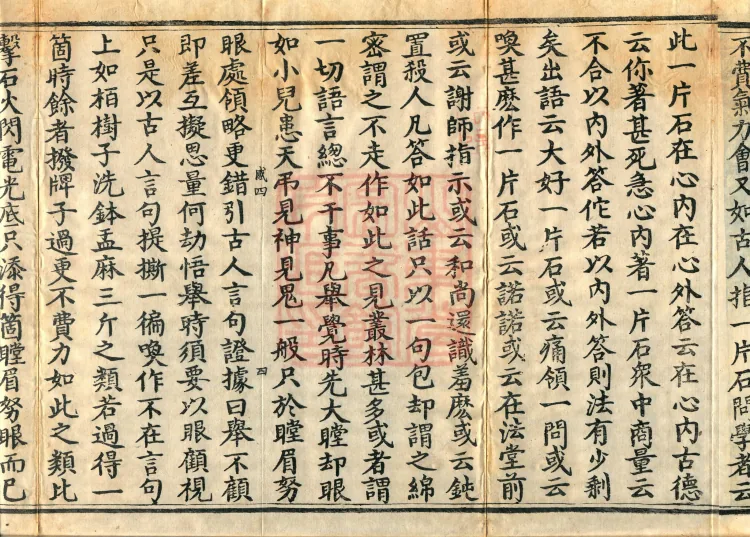 不費氣力會又如古人指一片石問學者云
此一片石在心內在心外答云在心內古德
云你著甚死急心內著一片石衆中商量云
不合以內外答佗若以內外答則法有少剩
矣出語云大好一片石或云痛領一問或云
喚甚麽作一片石或云諾諾或云在法堂前
或云謝師指示或云和尚還識羞麽或云鈍
置殺人凡答如此話只以一句包却謂之綿
密謂之不走作如此之見叢林甚多或者謂
一切語言總不干事凡舉覺時先大瞠却眼
如小兒患天吊見神見鬼一般只於瞠眉努
咸四
四
眼處領略更錯引古人言句證據曰舉不顧
即差互擬思量何劫悟舉時須要以眼顧視
只是以古人言句提撕一徧喚作不在言句
上如栢樹子洗鉢盂麻三斤之類若過得一
箇時餘者撥牌子過更不費力如此之類比
擊石火閃電光底只添得箇瞠眉努眼而已